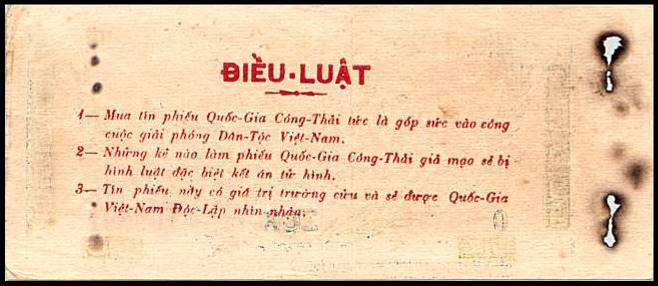 ĐIỀU-LUẬT
1— Mua tín phiếu Quốc-Gia Công-Thải tức là góp sức vào công
cuộc giải phóng Dân-Tộc Việt-Nam.
2— Những kẻ nào làm phiếu Quốc-Gia Công-Thải giả mạo sẽ bị
hình luật đặc biệt kết án tử hình.
3— Tín phiếu nầy có giá trị trường cửu và sẽ được Quốc-Gia
Việt-Nam Độc-Lập nhìn nhận.